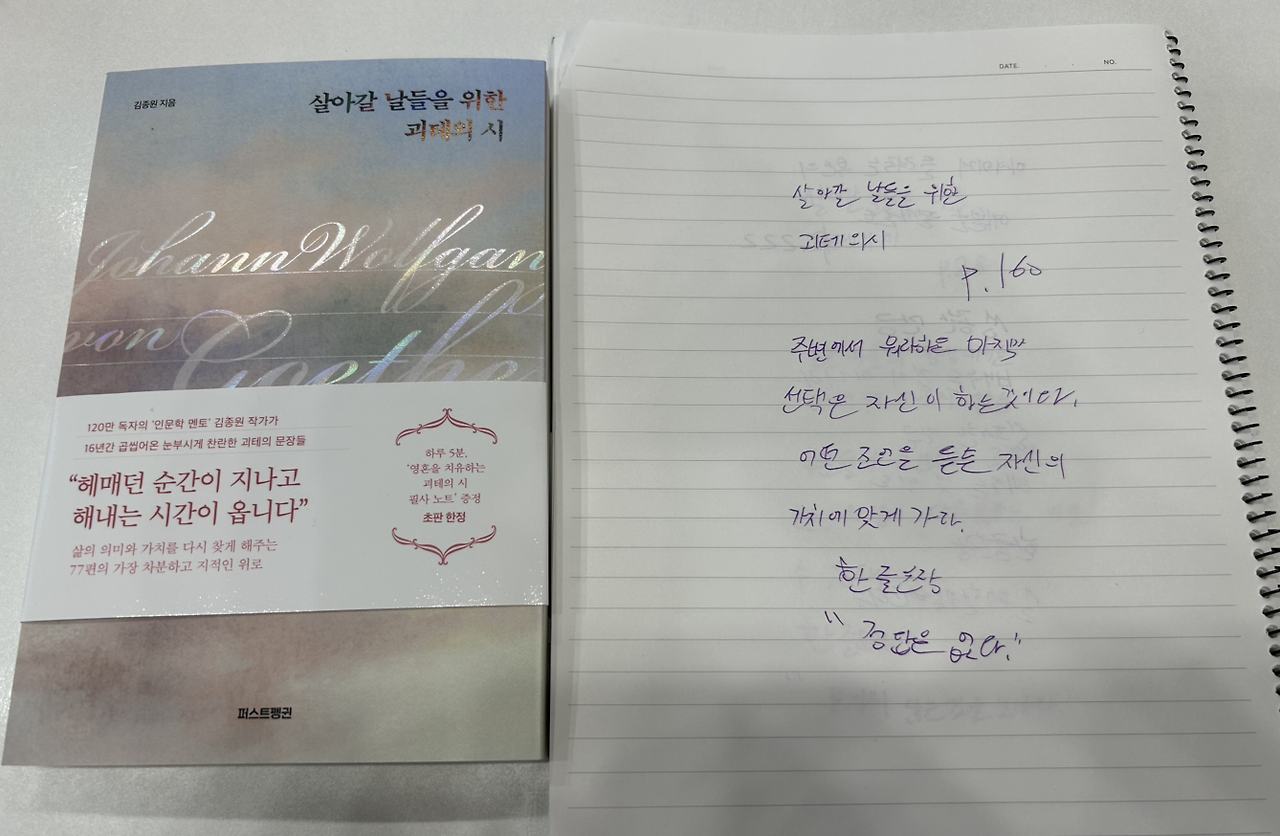 김종원 지음
살아갈 날들을 위한
괴테의 시
Johann Wolfgan
von Goethe
120만 독자의 '인문학 멘토' 김종원 작가가
16년간 곱씹어온 눈부시게 찬란한 괴테의 문장들
“헤매던 순간이 지나고
해내는 시간이 옵니다”
삶의 의미와 가치를 다시 찾게 해주는
77편의 가장 차분하고 지적인 위로
하루 5분,
'영혼을 치유하는
괴테의 시
필사 노트' 증정
초판 한정
퍼스트펭귄
DATE.
NO.
살아갈 날들을 위한
괴테의시
P.160
주변에서 뭐라하든 마지막
선택은 자신이 하는 것이다.
어떤 조언을 듣든 자신의
가치에 맞게 가라.
한 줄문장
"정답은 없다."